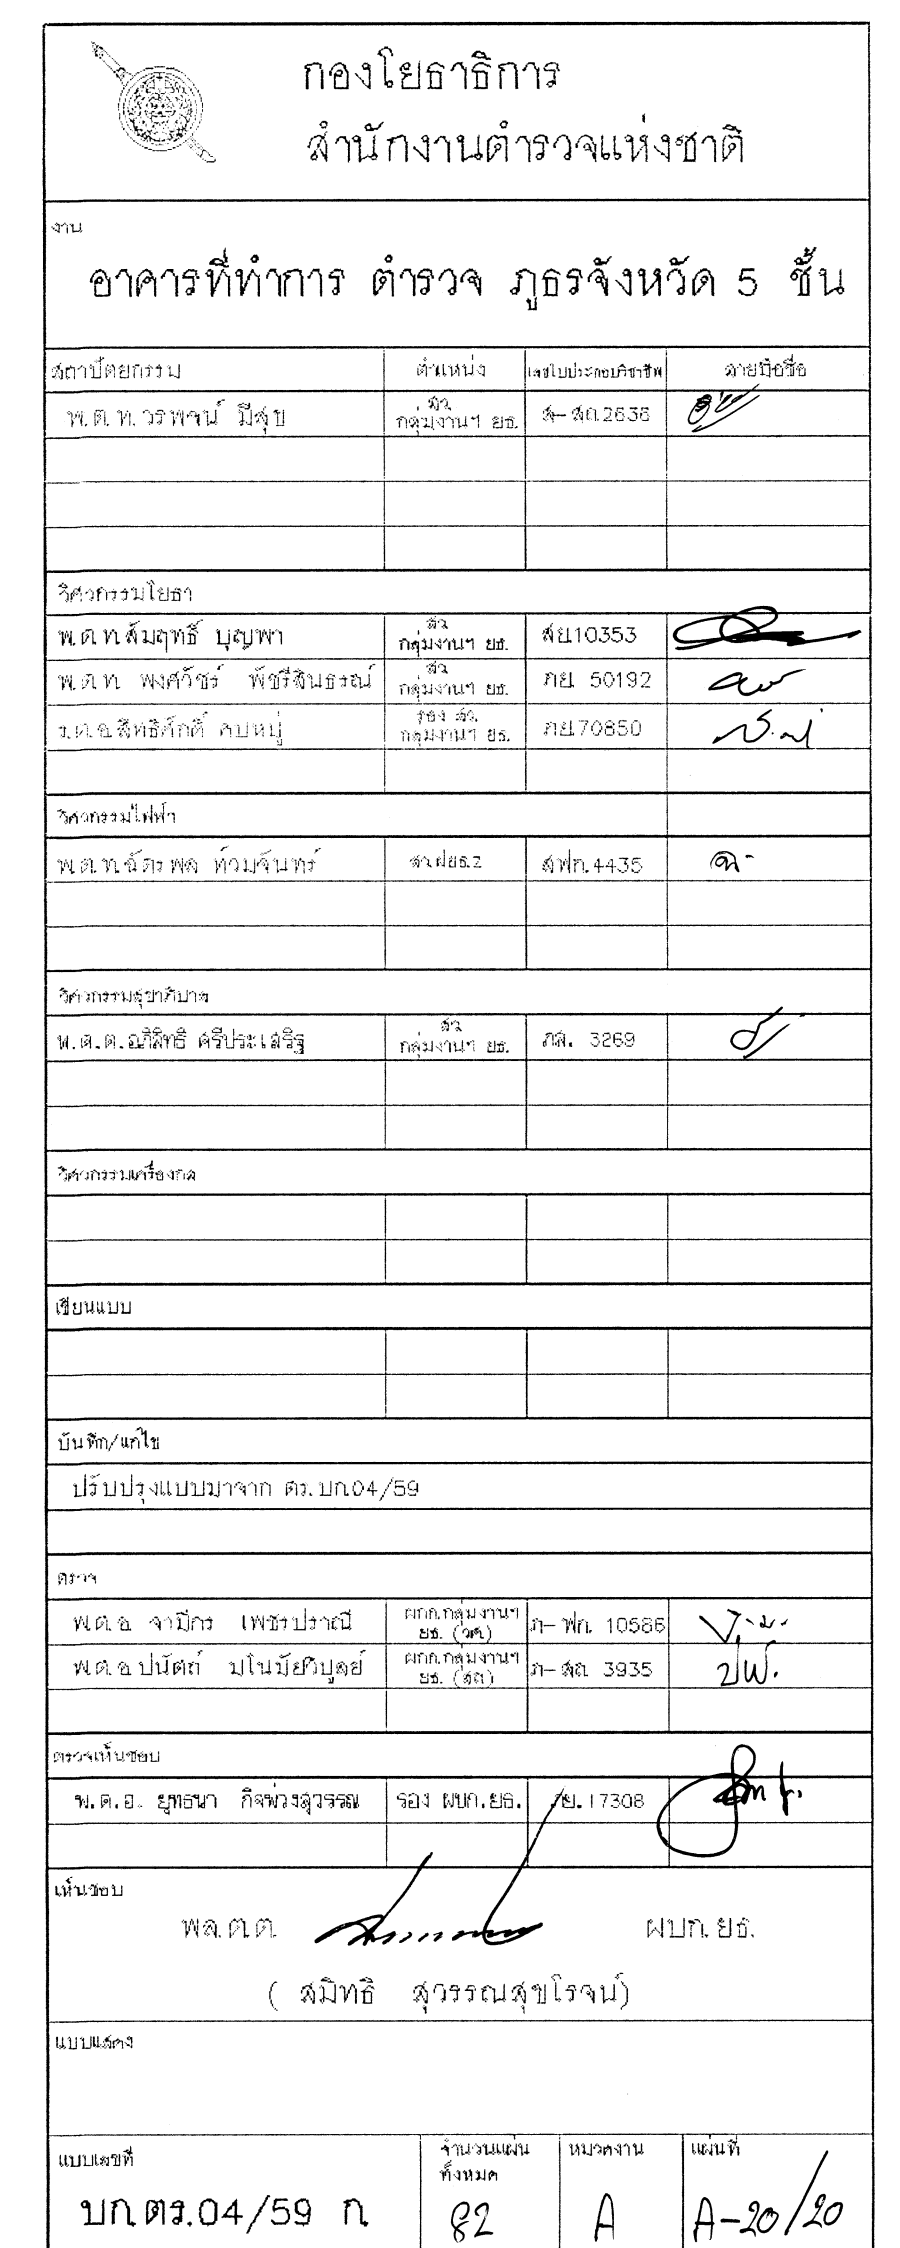 กองโยธาธิการ
สำนักงานตำรวจแห่งชาติ
งาน
อาคารที่ทำการ ตำรวจ ภูธรจังหวัด 5 ชั้น
สถาปัตยกรรม ตำแหน่ง เลขใบประกอบวิชาชีพ ลายมือชื่อ
พ.ต.ท.วรพจน์ มีสุข สว กลุ่มงานฯ ยธ. ส-สถ.2638
วิศวกรรมโยธา
พ.ต.ท.สัมฤทธิ์ บุญพา สว กลุ่มงานฯ ยธ. สย.10353
พ.ต.ท. พงศวัชร์ พัชรีสินธรณ์ สว กลุ่มงานฯ ยธ. ภย. 50192
ร.ต.อ.สิทธิศักดิ์ คบหมู่ รอง สว. กลุ่มงานฯ ยธ. ภย.70850
วิศวกรรมไฟฟ้า
พ.ต.ท.ฉัตรพล ท้วมจันทร์ สว.ฝยธ.2 สฟก.4435
วิศวกรรมสุขาภิบาล
พ.ต.ต.อภิสิทธิ ศรีประเสริฐ สว กลุ่มงานฯ ยธ. ภส. 3269
วิศวกรรมเครื่องกล
เขียนแบบ
บันทึก/แก้ไข
ปรับปรุงแบบมาจาก ตร.บก.04/59
ตรวจ
พ.ต.อ. จามีกร เพชรปราณี ผกก.กลุ่มงานฯ ยธ. (วศ.) ภ-ฟก. 10586
พ.ต.อ.ปนัตถ์ มโนมัยวิบูลย์ ผกก.กลุ่มงานฯ ยธ. (สถ) ภ-สถ 3935
ตรวจเห็นชอบ
พ.ต.อ. ยุทธนา กิจพ่วงสุวรรณ รอง ผบก.ยธ. ภย.17308
เห็นชอบ
พล.ต.ต. ผบก.ยธ.
( สมิทธิ สุวรรณสุขโรจน์)
แบบแสดง
แบบเลขที่ จำนวนแผ่น ทั้งหมด หมวดงาน แผ่นที่
บก.ตร.04/59 ก 82 A A-20/20